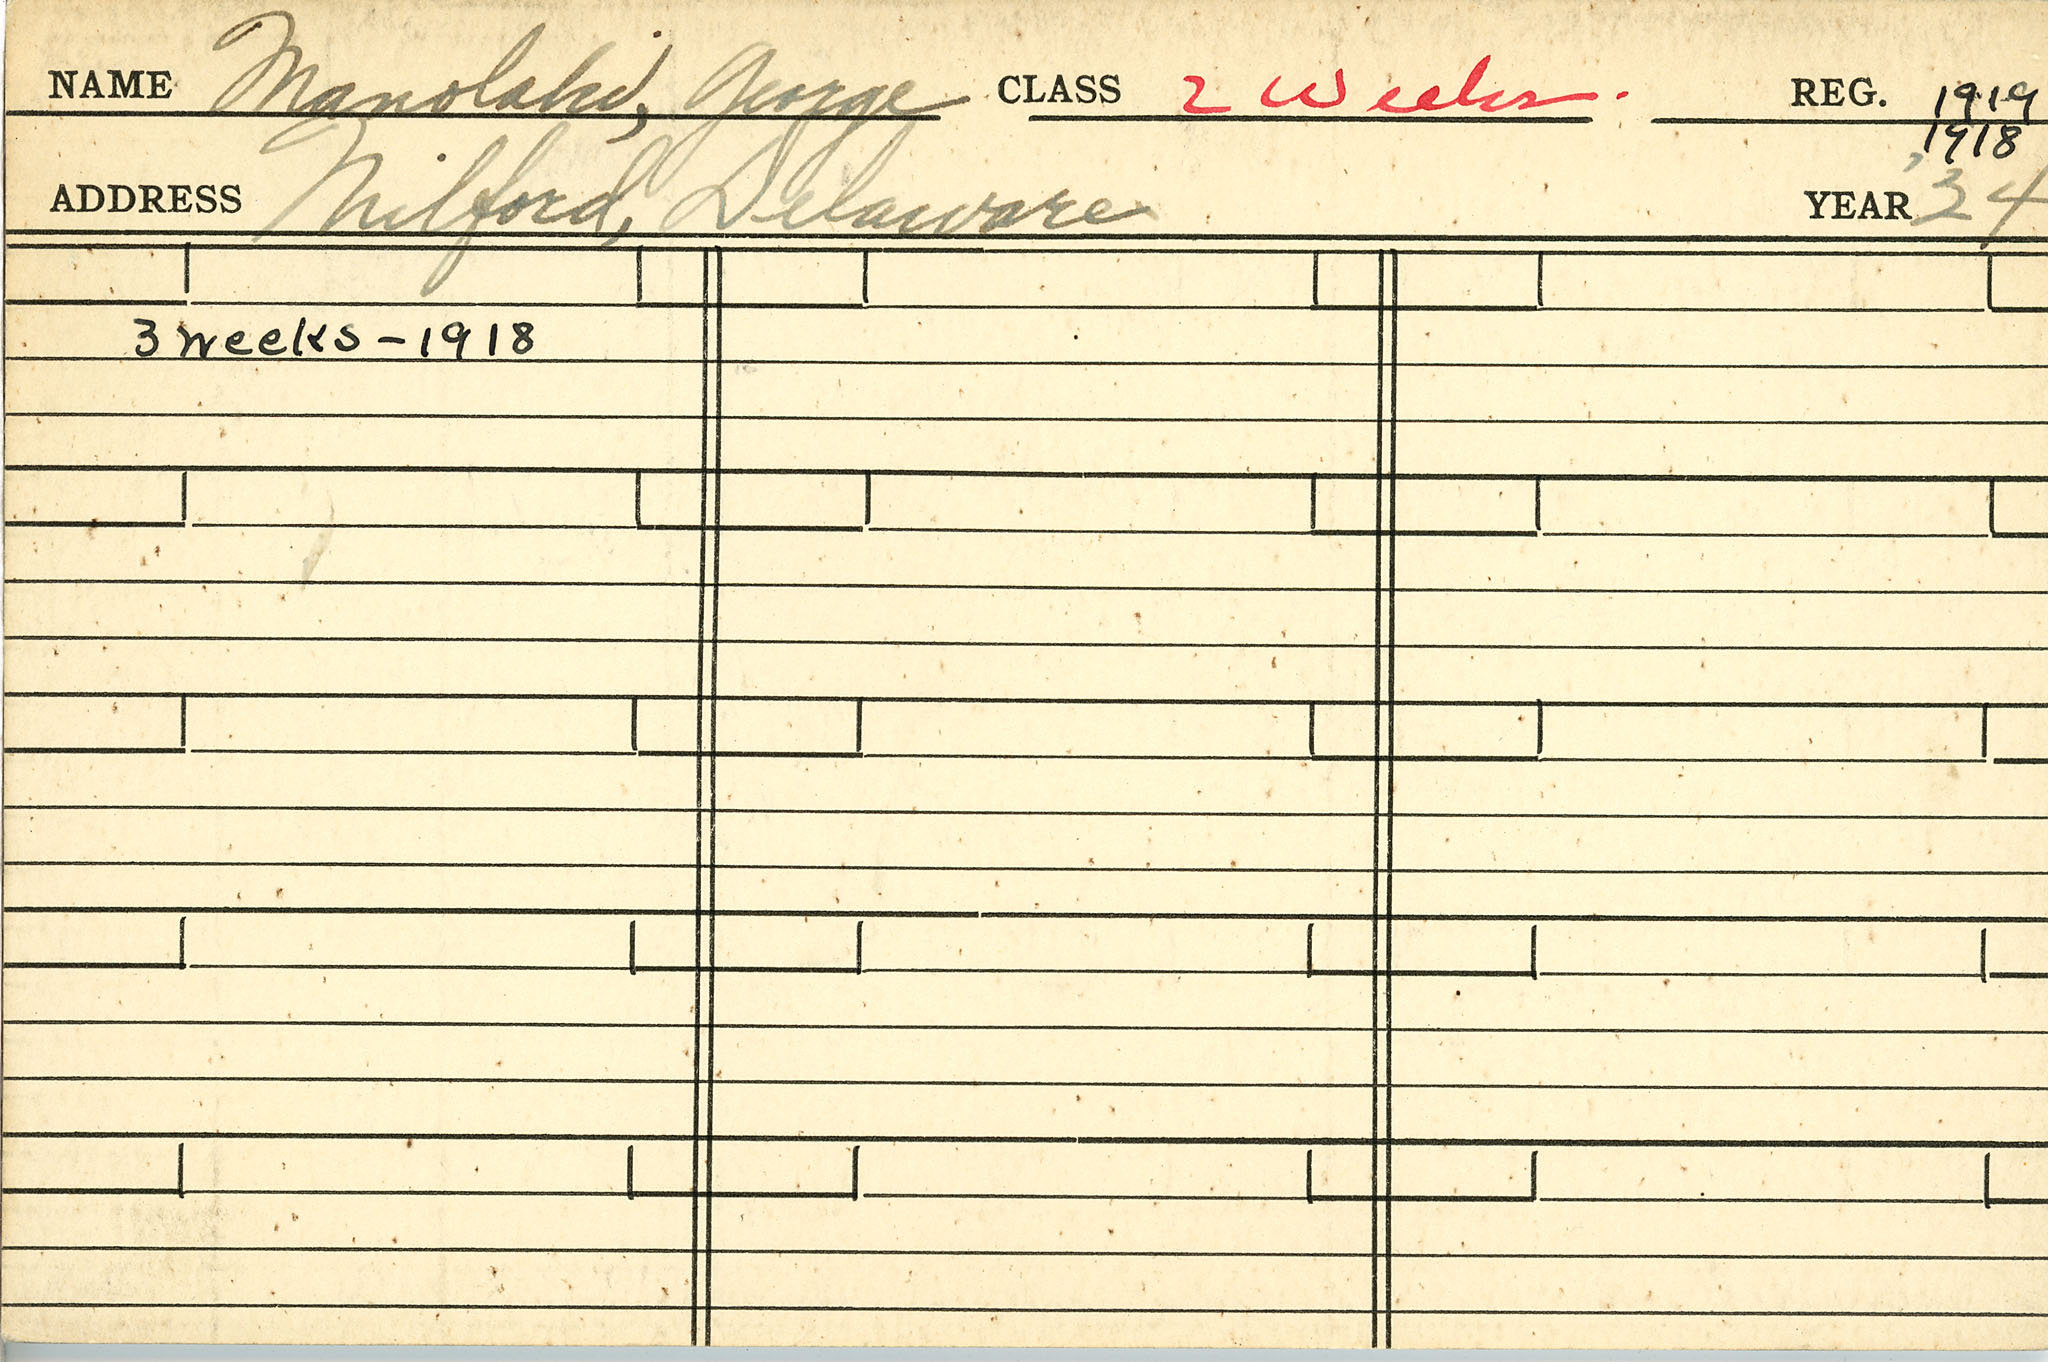 NAME Manolaki, George CLASS 2 Weeks. REG. 1919
1918
ADDRESS Milford, Delaware YEAR '24
3 weeks - 1918